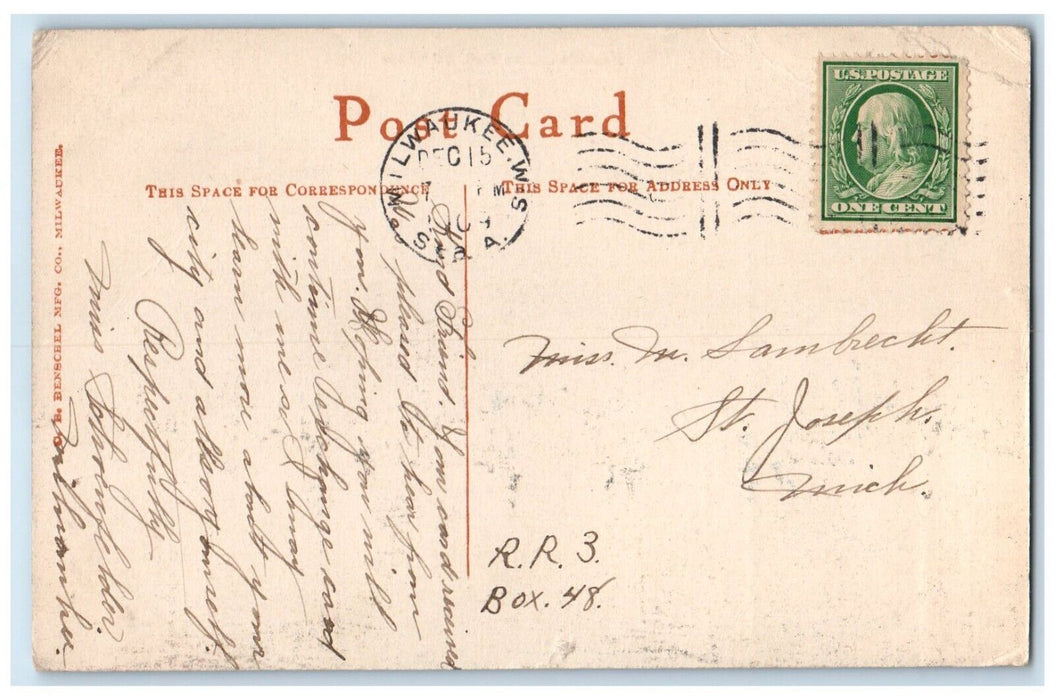 Post Card
THIS SPACE FOR CORRESPONDENCE
THIS SPACE FOR ADDRESS ONLY
MILWAUKEE, WIS.
DEC 15
7 PM
U.S. POSTAGE
ONE CENT
E. C. HENSCHEL MFG. CO., MILWAUKEE.
Friend. Your card received
Was pleased to hear from
you. Hoping you will
continue exchange card
with me as I may
learn more about your
city and also yourself.
Respectfully
Miss Schoenfelder.
Milwaukee.
Miss. M. Lambrecht.
St. Joseph.
Mich.
R.R. 3.
Box. 48.